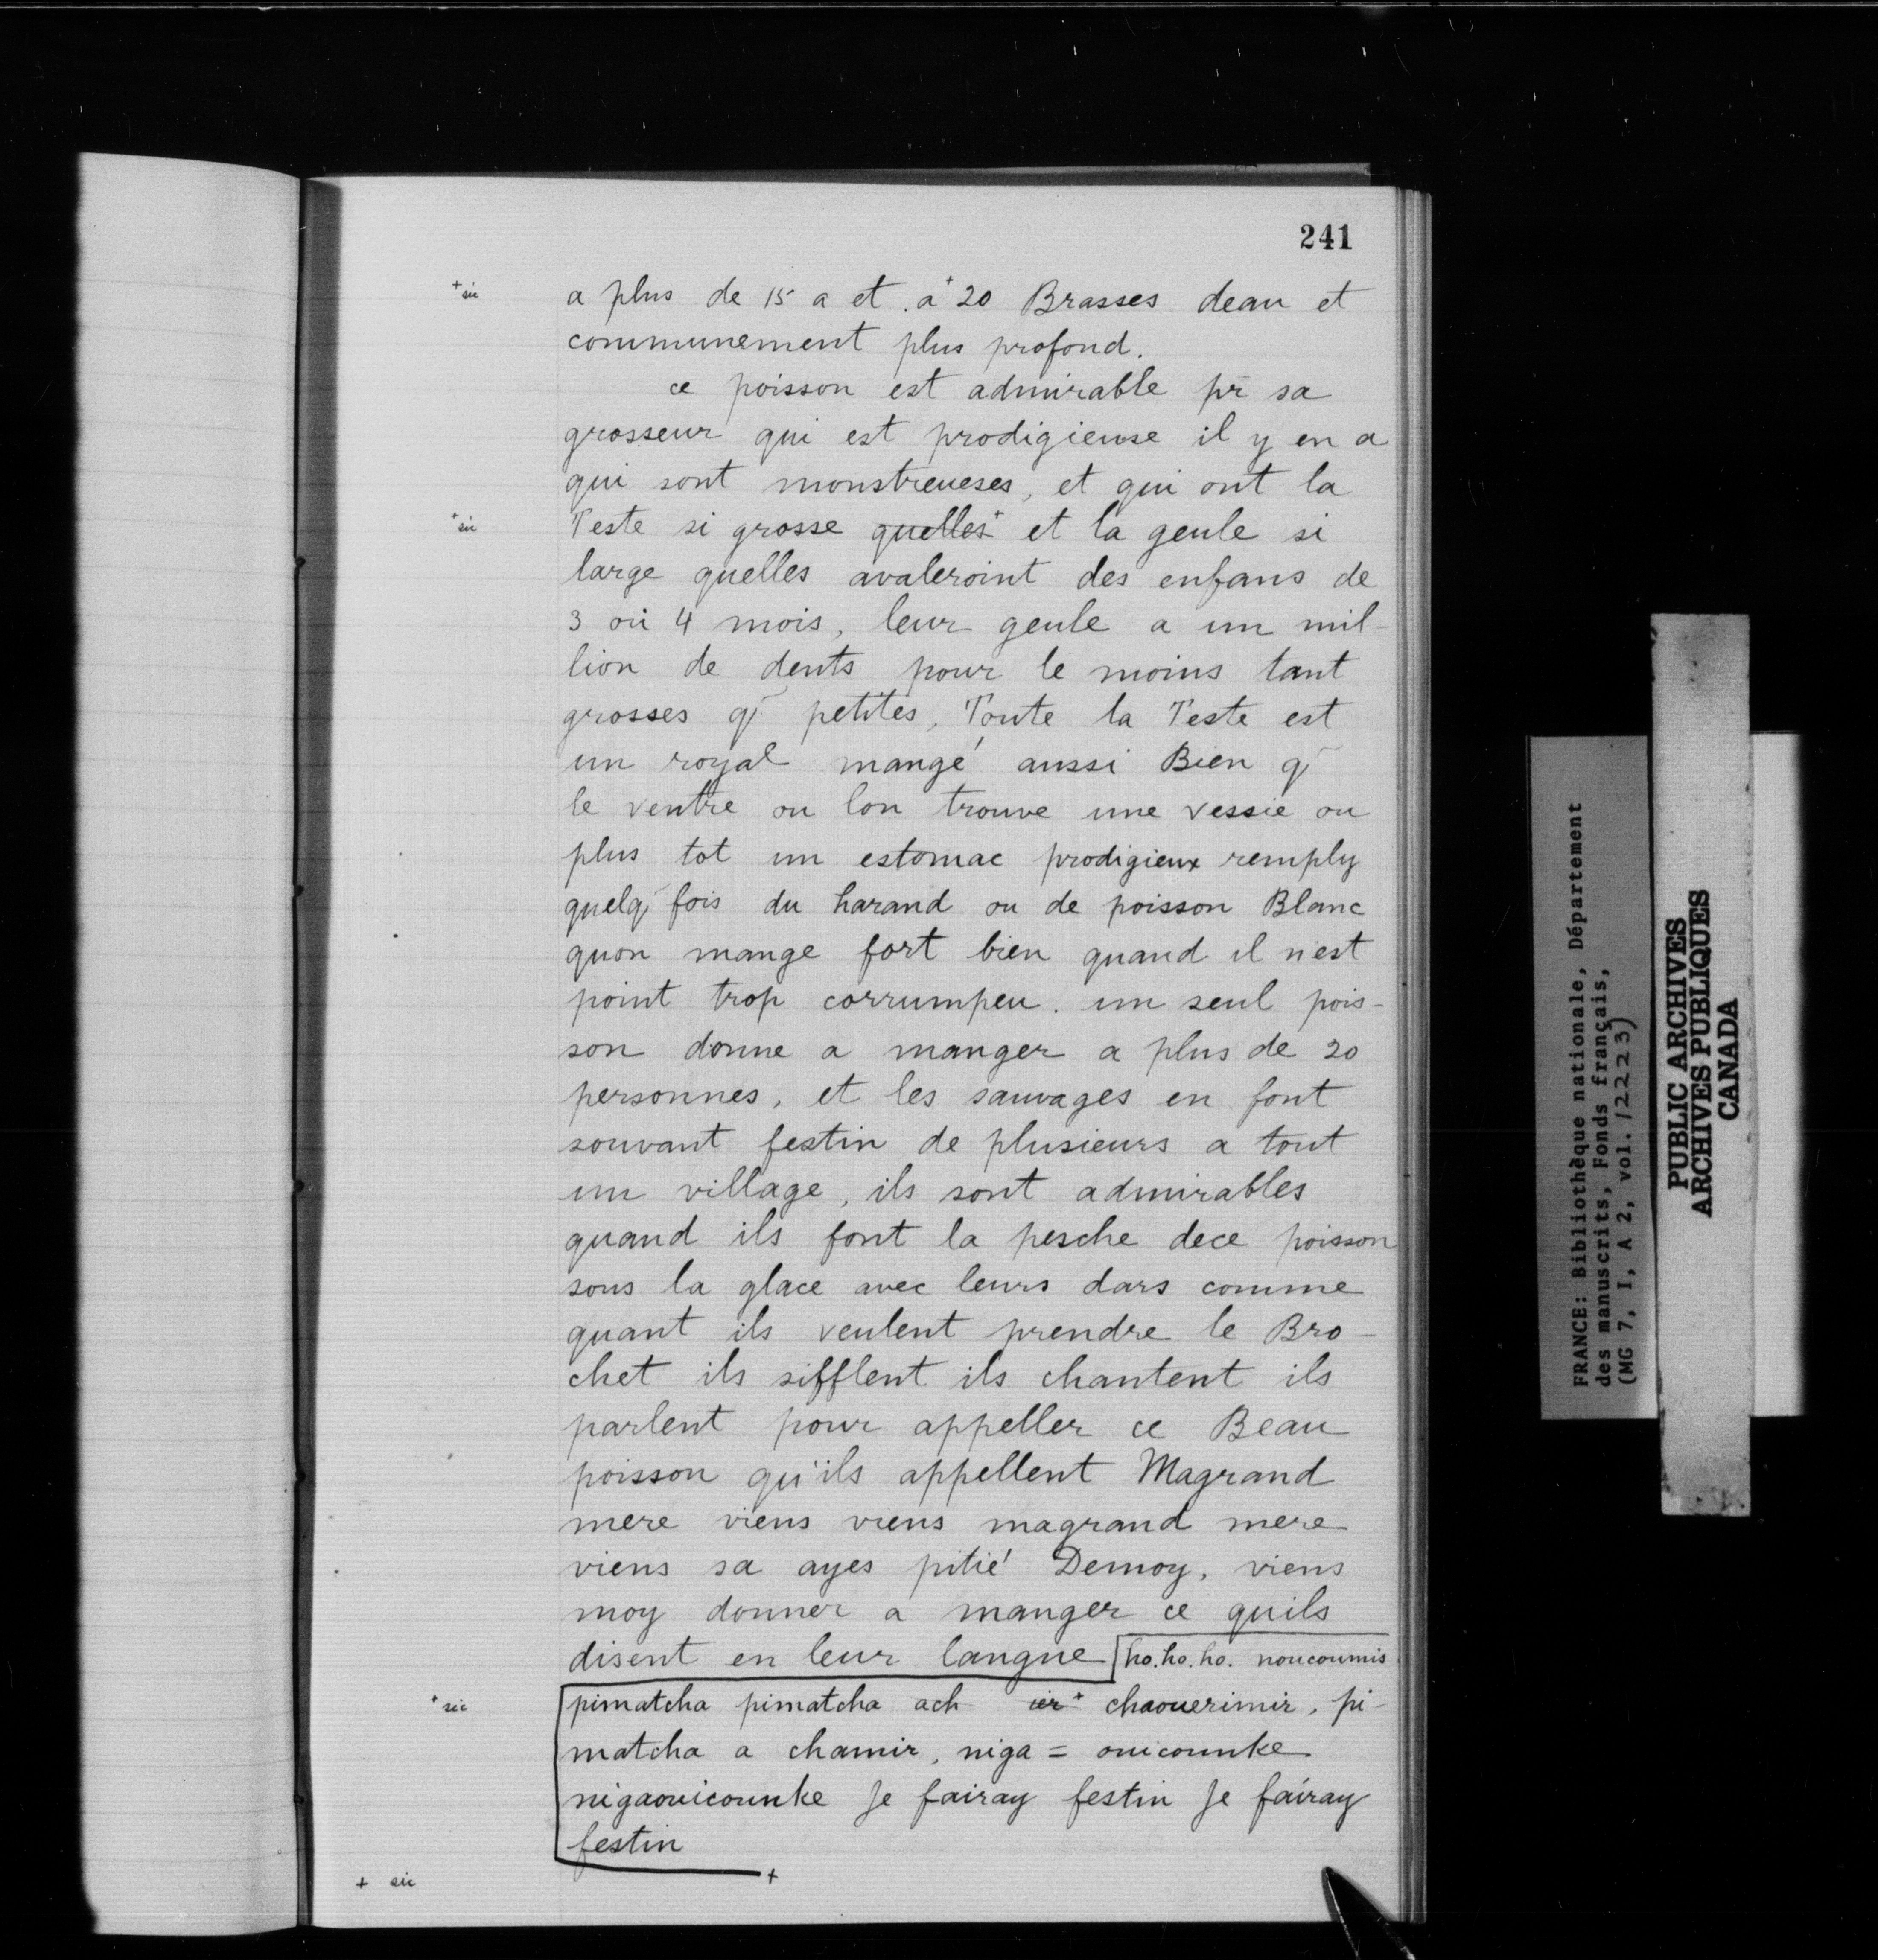 241
+sic a plus de 15 a et . a+ 20 Brasses deau et
communement plus profond.
ce poisson est admirable pr̄ sa
grosseur qui est prodigieuse il y en a
qui sont monstreueses, et qui ont la
+sic Teste si grosse quelles+ et la geule si
large quelles avaleroint des enfans de
3 ou 4 mois, leur geule a un mil-
lion de dents pour le moins tant
grosses q̄ petites, Toute la Teste est
un royal mangé aussi Bien q̄
le ventre ou lon trouve une vessie ou
plus tot un estomac prodigieux remply
quelq̄ fois du harand ou de poisson Blanc
quon mange fort bien quand il n'est
point trop corrumpeu. un seul pois-
son donne a manger a plus de 20
personnes, et les sauvages en font
souvant festin de plusieurs a tout
un village, ils sont admirables
quand ils font la pesche dece poisson
sous la glace avec leurs dars comme
quant ils veulent prendre le Bro-
chet ils sifflent ils chantent ils
parlent pour appeller ce Beau
poisson qu'ils appellent Magrand
mere viens viens magrand mere
viens sa ayes pitié Demoy, viens
moy donner a manger ce quils
disent en leur langue ho. ho. ho. noucoumis
+sic pimatcha pimatcha ach ier+ chaouerimir, pi-
matcha a chamir, niga = ouicounke
nigaouicounke Je fairay festin Je fairay
festin
+
+ sic
FRANCE: Bibliothèque nationale, Département
des manuscrits, Fonds français,
(MG 7, I, A 2, vol. 12223)
PUBLIC ARCHIVES
ARCHIVES PUBLIQUES
CANADA